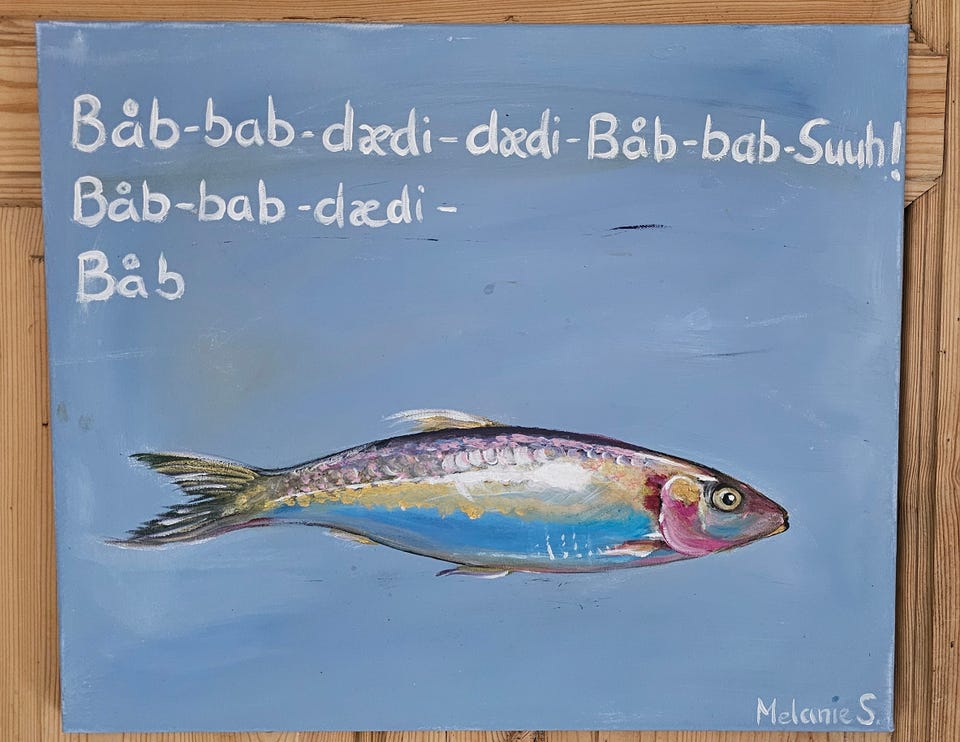 Båb-bab-dædi-dædi-Båb-bab-Suuh!
Båb-bab-dædi-
Båb
Melanie S.